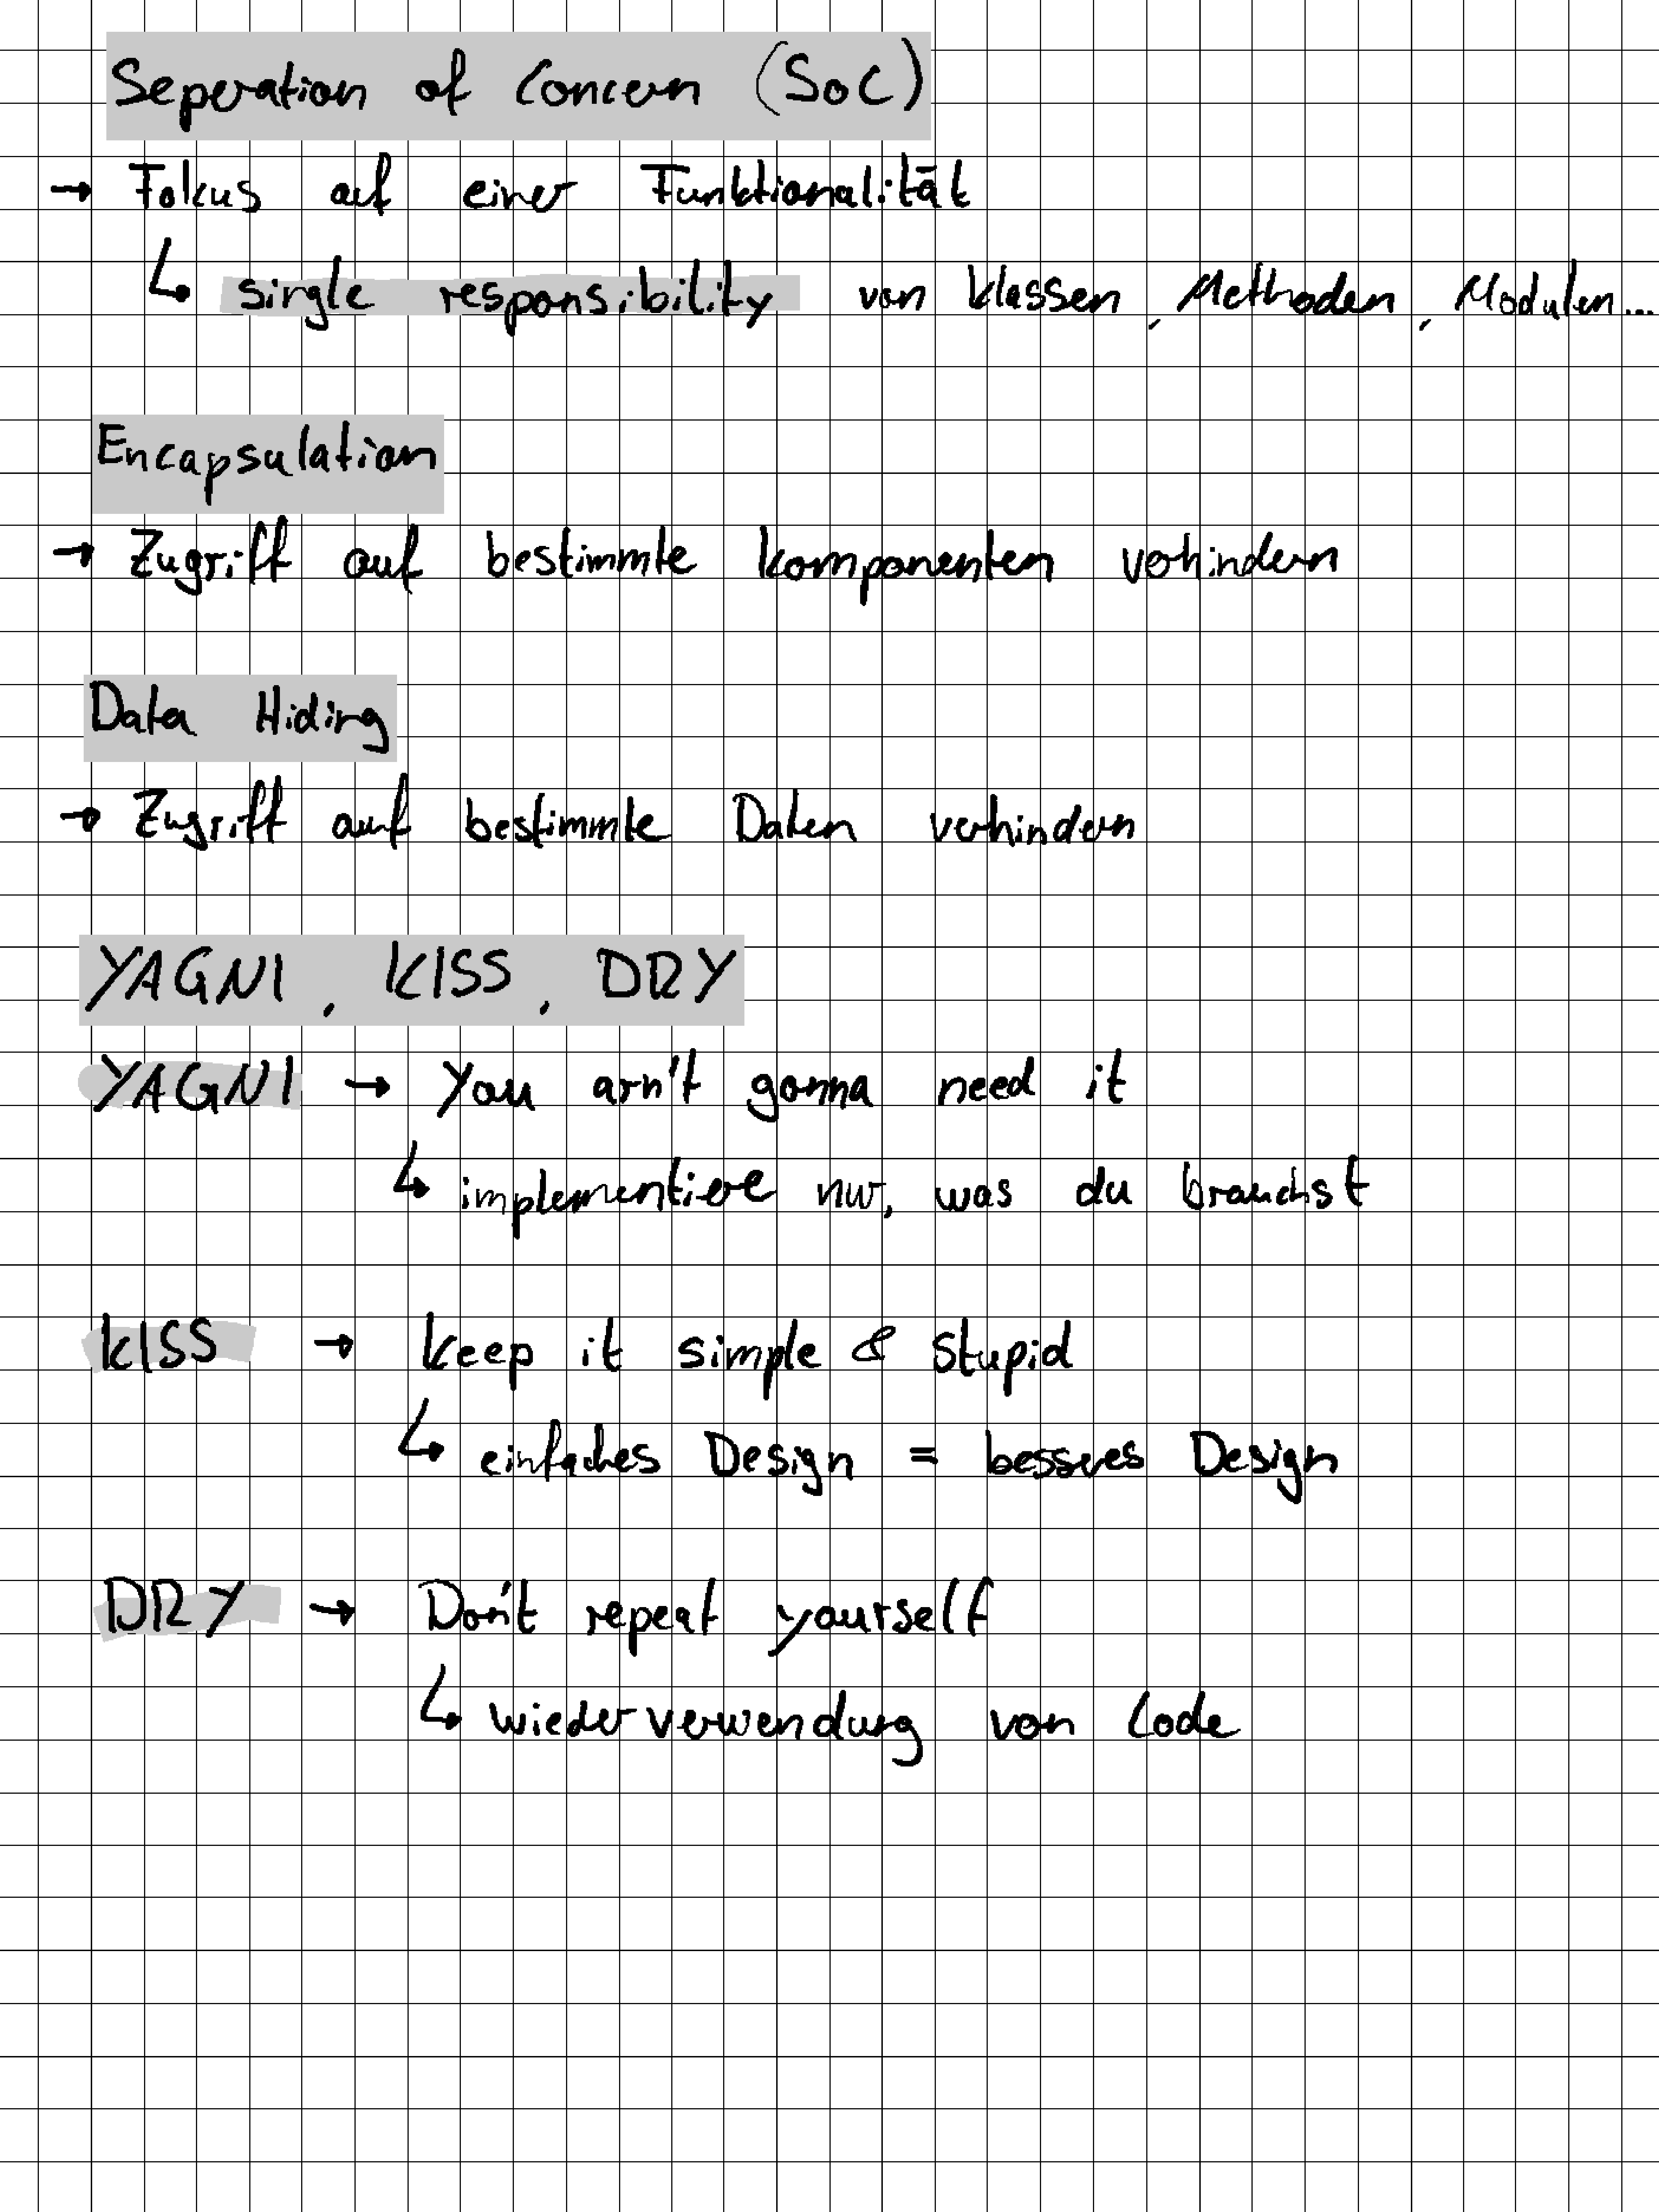 Seperation of Concern (SoC)
→ Fokus auf einer Funktionalität
↳ single responsibility von Klassen, Methoden, Modulen...
Encapsulation
→ Zugriff auf bestimmte Komponenten verhindern
Data Hiding
→ Zugriff auf bestimmte Daten verhindern
YAGNI, KISS, DRY
YAGNI → You arn't gonna need it
↳ implementiere nur, was du brauchst
KISS → Keep it simple & stupid
↳ einfaches Design = besseres Design
DRY → Don't repeat yourself
↳ wiederverwendung von Code